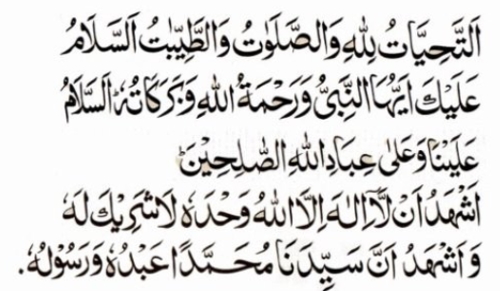 اَلتَّحِيَّاتُ لِلّٰهِ وَالصَّلَوٰتُ وَالطَّيِّبٰتُ اَلسَّلَامُ
عَلَيْكَ اَيُّهَا النَّبِيُّ وَرَحْمَةُ اللهِ وَبَرَكَاتُهٗ اَلسَّلَامُ
عَلَيْنَا وَعَلٰى عِبَادِ اللهِ الصّٰلِحِيْنَ
اَشْهَدُ اَنْ لَّآ اِلٰهَ اِلَّا اللهُ وَحْدَهٗ لَا شَرِيْكَ لَهٗ
وَاَشْهَدُ اَنَّ سَيِّدَنَا مُحَمَّدًا عَبْدُهٗ وَرَسُوْلُهٗ.